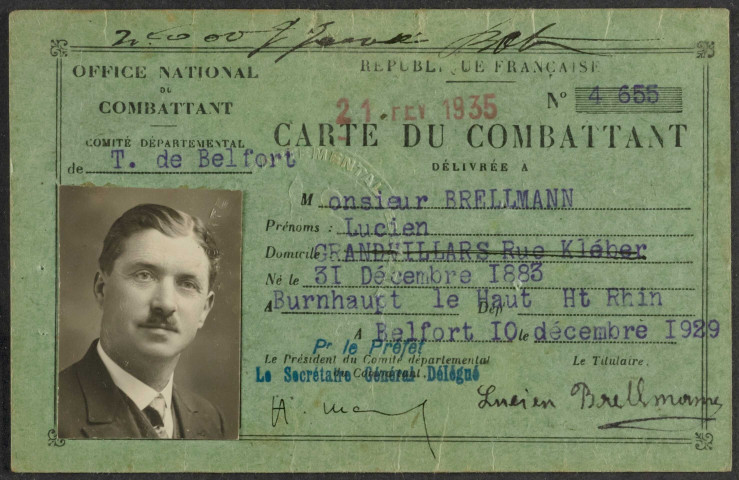 OFFICE NATIONAL
DU
COMBATTANT
COMITÉ DÉPARTEMENTAL
de T. de Belfort
RÉPUBLIQUE FRANÇAISE
21 FEV 1935
N° 4 655
CARTE DU COMBATTANT
DÉLIVRÉE A
Monsieur BRELLMANN
Prénoms : Lucien
Domicile GRANDVILLARS Rue Kléber
Né le 31 Décembre 1883
A Burnhaupt le Haut Dép Ht Rhin
A Belfort 10 le décembre 1929
Pr le Préfet
Le Président du Comité départemental
Le Secrétaire Général Délégué
Le Titulaire.
Lucien Brellmann